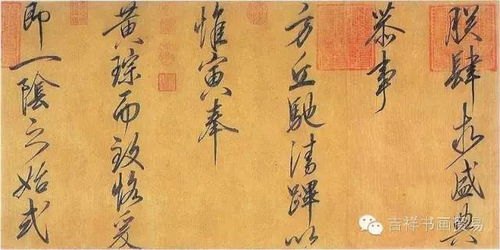 朕肆求盛典
恭事
方丘馳清蹕以
惟寅奉
黃琮而致恪爰
即一陰之始式
吉祥书画贸易